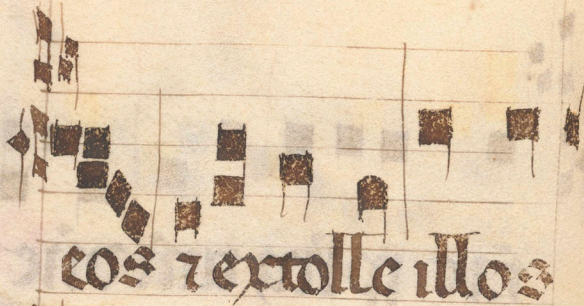 eos ⁊ extolle illos